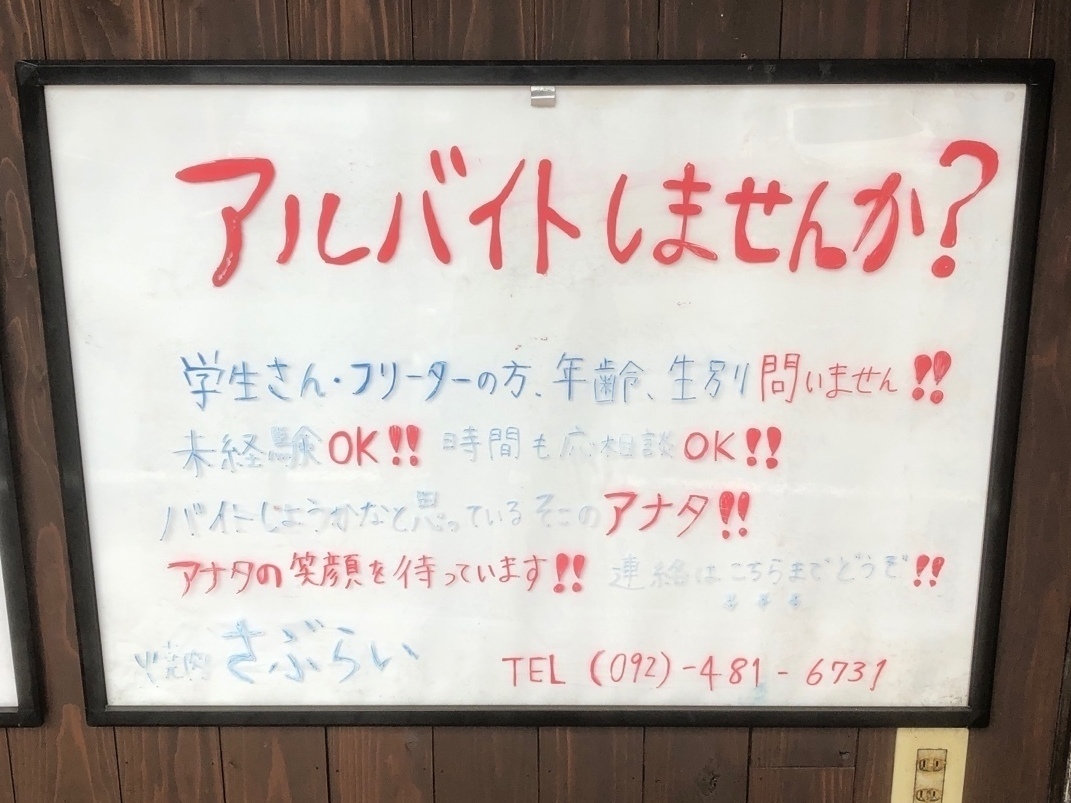 アルバイトしませんか?
学生さん・フリーターの方、年齢、生別問いません!!
未経験OK!! 時間も応相談OK!!
バイトしようかなと思っているそこのアナタ!!
アナタの笑顔を待っています!! 連絡はこちらまでどうぞ!!
焼肉 さぶらい TEL (092)-481-6731